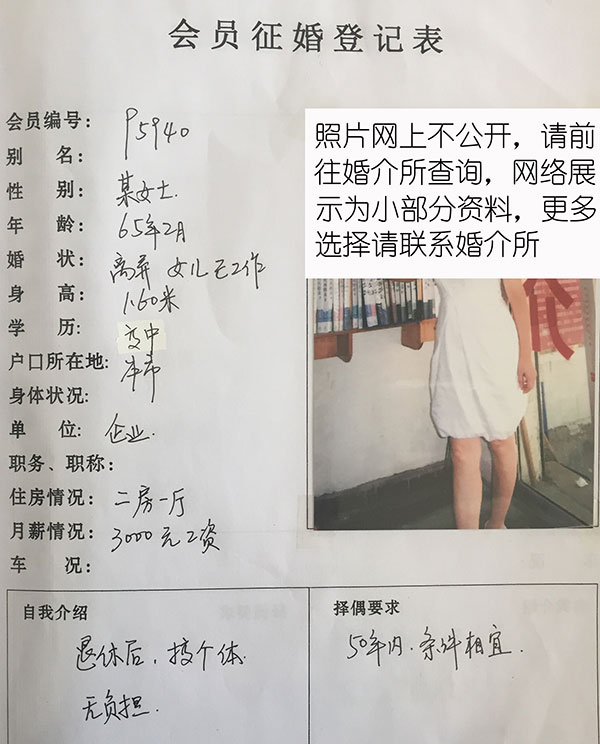 会员征婚登记表
会员编号： P5940
别 名：
性 别： 某女士.
年 龄： 65年2月
婚 状： 离异 女儿已工作
身 高： 1.60米
学 历： 高中
户口所在地： 本市
身体状况：
单 位： 企业.
职务、职称：
住房情况： 二房一厅
月薪情况： 3000元工资
车 况：
照片网上不公开，请前
往婚介所查询，网络展
示为小部分资料，更多
选择请联系婚介所
自我介绍
退休后，搞个体.
无负担.
择偶要求
50年内.条件相宜.